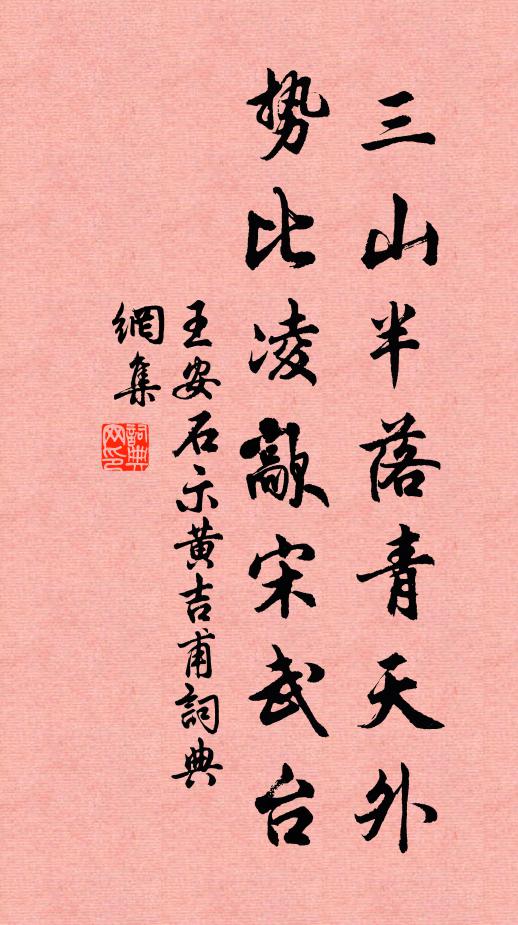 三山半落青天外
势比凌歊宋武台
王安石示黄吉甫詞典
網集
詞典网印